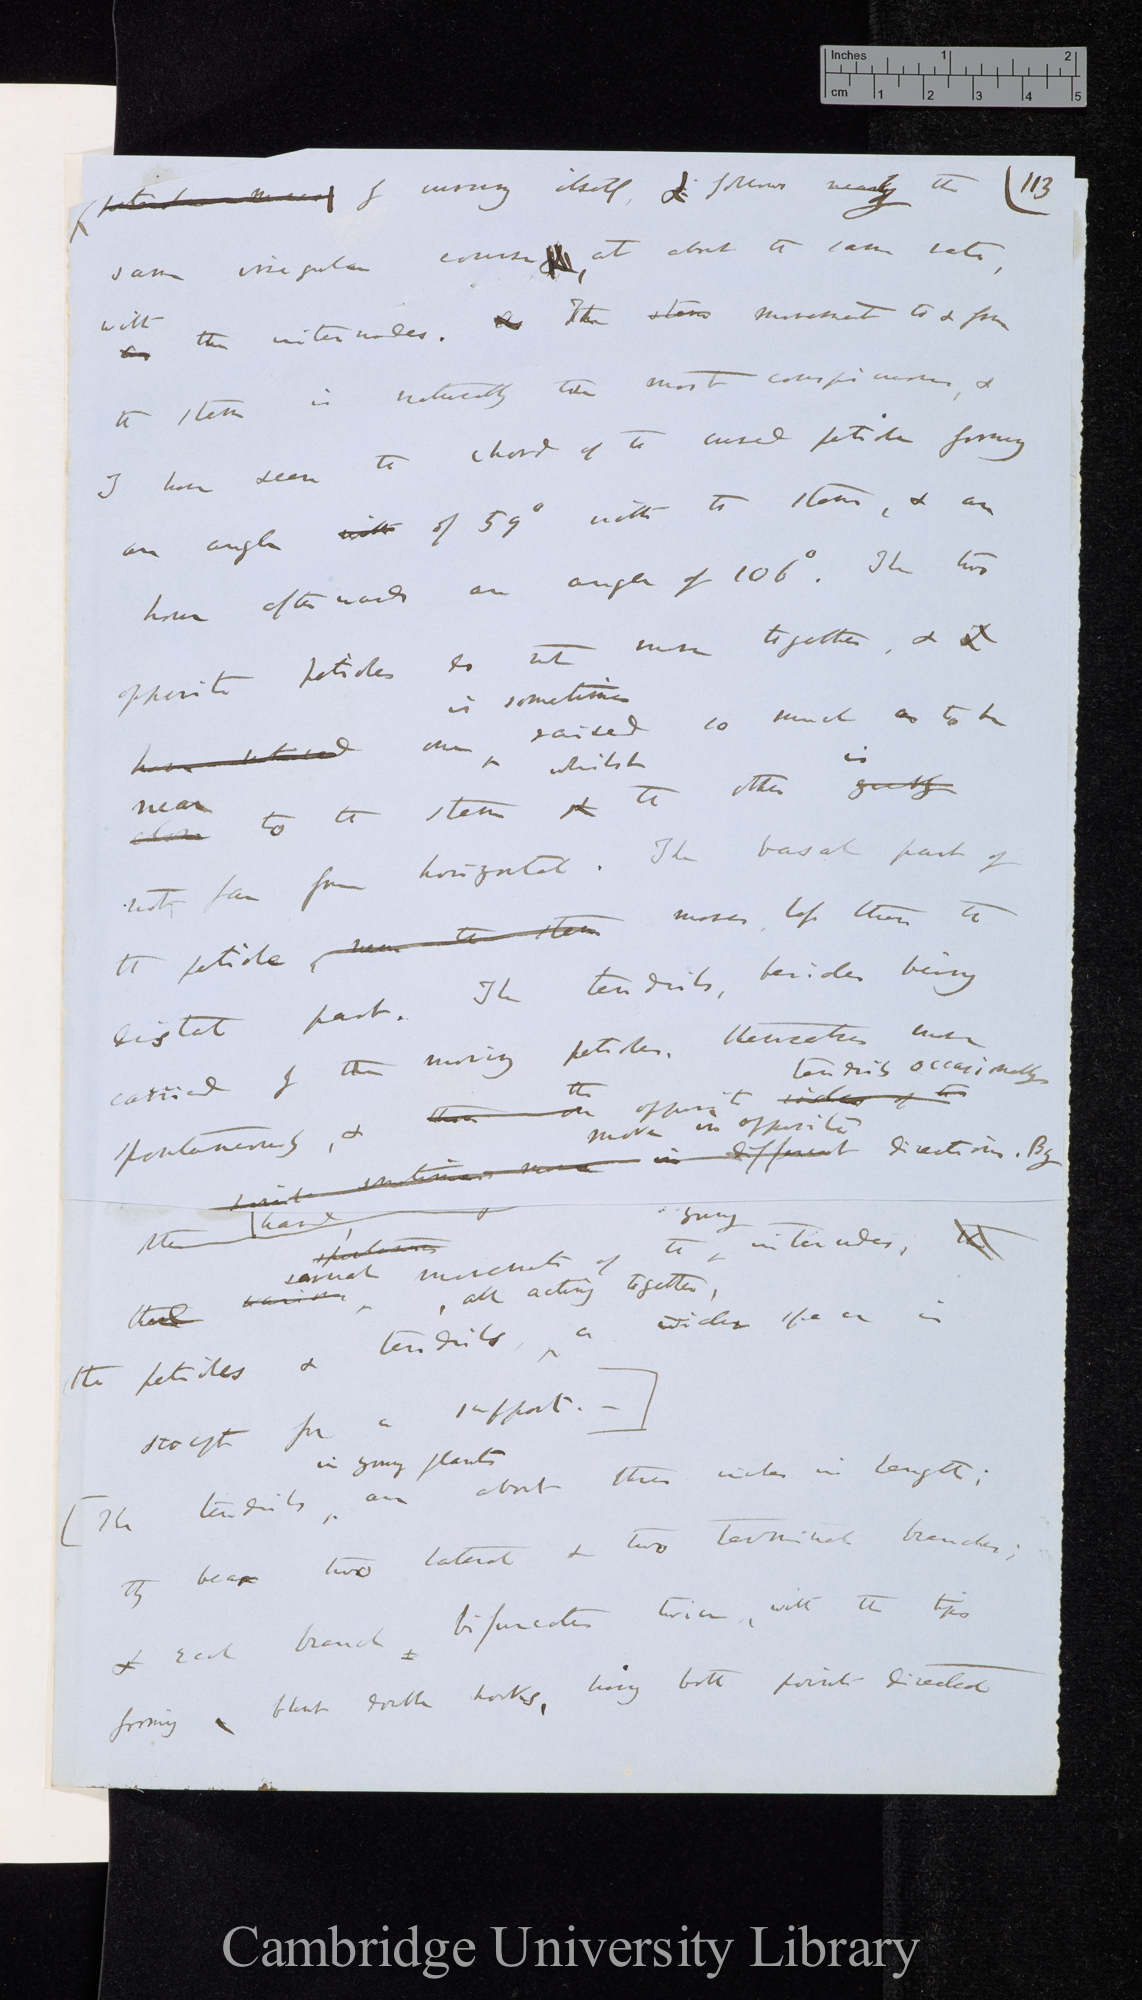 Inches 1 2
cm 1 2 3 4 5
113
of moving itself, & follows nearly the
same irregular course, at about the same rate,
with
as the internodes. & The stem movement to & from
the stem is naturally the most conspicuous, &
I have seen the chord of the curved petiole forming
an angle with of 59° with the stem, & an
hour afterwards an angle of 106°. The two
opposite petioles do not move together, & I
is sometimes
have noticed one ^ raised so much as to be
whilst is
near
close to the stem & the other
not far from horizontal. The basal part of
the petiole, near the stem moves less than the
distal part. The tendrils, besides being
carried by the moving petioles, themselves move
tendrils occasionally
spontaneously, & the opposite sides of the
move in opposite
sometimes move in different directions. By
these
young
movements of the ^ internodes, the
, all acting together,
the petioles & tendrils, ^ a wider space is
swept for a support. —
in young plants
The tendrils ^ are about three inches in length;
they bear two lateral & two terminal branches;
& each branch bifurcates twice, with the tips
forming blunt double hooks, having both points directed
Cambridge University Library